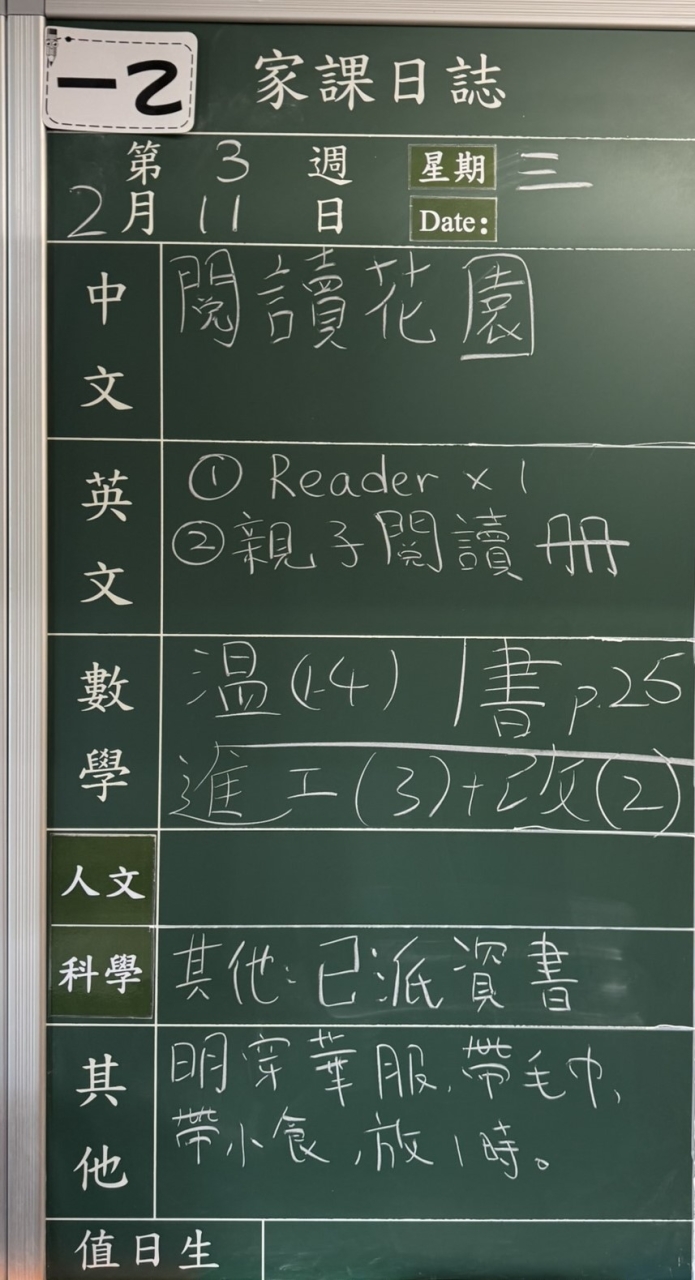 一2
家課日誌
第 3 週 星期 三
2月 11 日 Date:
中文
閱讀花園
英文
① Reader × 1
② 親子閱讀冊
數學
溫(1-4) | 書 p.25
進工(3)+改(2)
人文
科學
其他:已派資書
其他
明穿華服,帶毛巾,
帶小食,放1時。
值日生